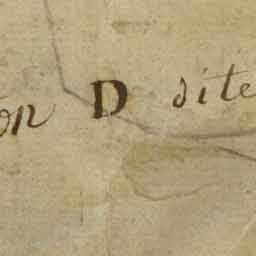 on D dite